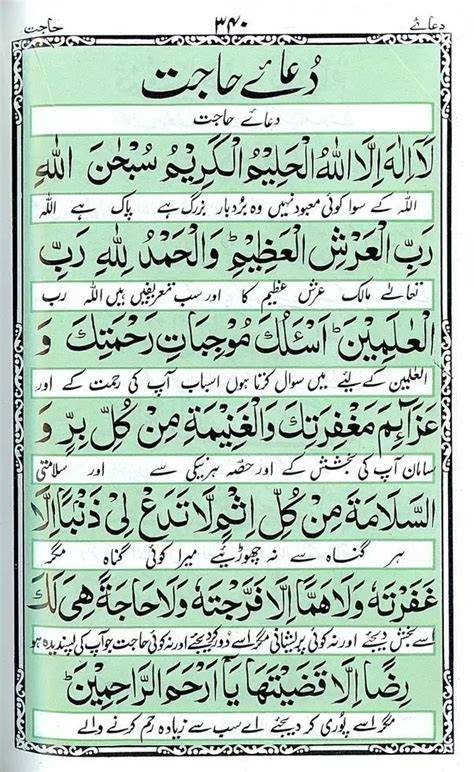 دعائے ۳۴۰ حاجت
دُعائے حاجت
دعائے حاجت
لَآ اِلٰهَ اِلَّا اللهُ الْحَلِيْمُ الْكَرِيْمُ سُبْحٰنَ اللهِ
اللہ کے سوا کوئی معبود نہیں وہ بُردبار بزرگ ہے پاک ہے اللہ
رَبِّ الْعَرْشِ الْعَظِيْمِ ؕ وَالْحَمْدُ لِلّٰهِ رَبِّ
تعالےٰ مالک عرش عظیم کا اور سب تعریفیں ہیں اللہ رب
الْعٰلَمِيْنَ ؕ اَسْئَلُكَ مُوْجِبَاتِ رَحْمَتِكَ وَ
العلمین کے لیئے میں سوال کرتا ہوں اسباب آپ کی رحمت کے اور
عَزَآئِمَ مَغْفِرَتِكَ وَالْغَنِيْمَةَ مِنْ كُلِّ بِرٍّ وَ
سامان آپ کی بخشش کے اور حصّہ ہر نیکی سے اور سلامتی
السَّلَامَةَ مِنْ كُلِّ اِثْمٍ لَّا تَدَعْ لِىْ ذَنْبًا اِلَّا
ہر گناہ سے نہ چھوڑیئے میرا کوئی گناہ مگر
غَفَرْتَهٗ وَلَا هَمًّا اِلَّا فَرَّجْتَهٗ وَلَا حَاجَةً هِىَ لَكَ
اسے بخش دیجئے اور نہ کوئی پریشانی مگر اسے دور کر دیجئے اور نہ کوئی حاجت جو آپ کی پسندیدہ ہو
رِضًا اِلَّا قَضَيْتَهَا يَآ اَرْحَمَ الرَّاحِمِيْنَ ؕ
مگر اسے پوری کر دیجئے اے سب سے زیادہ رحم کرنے والے